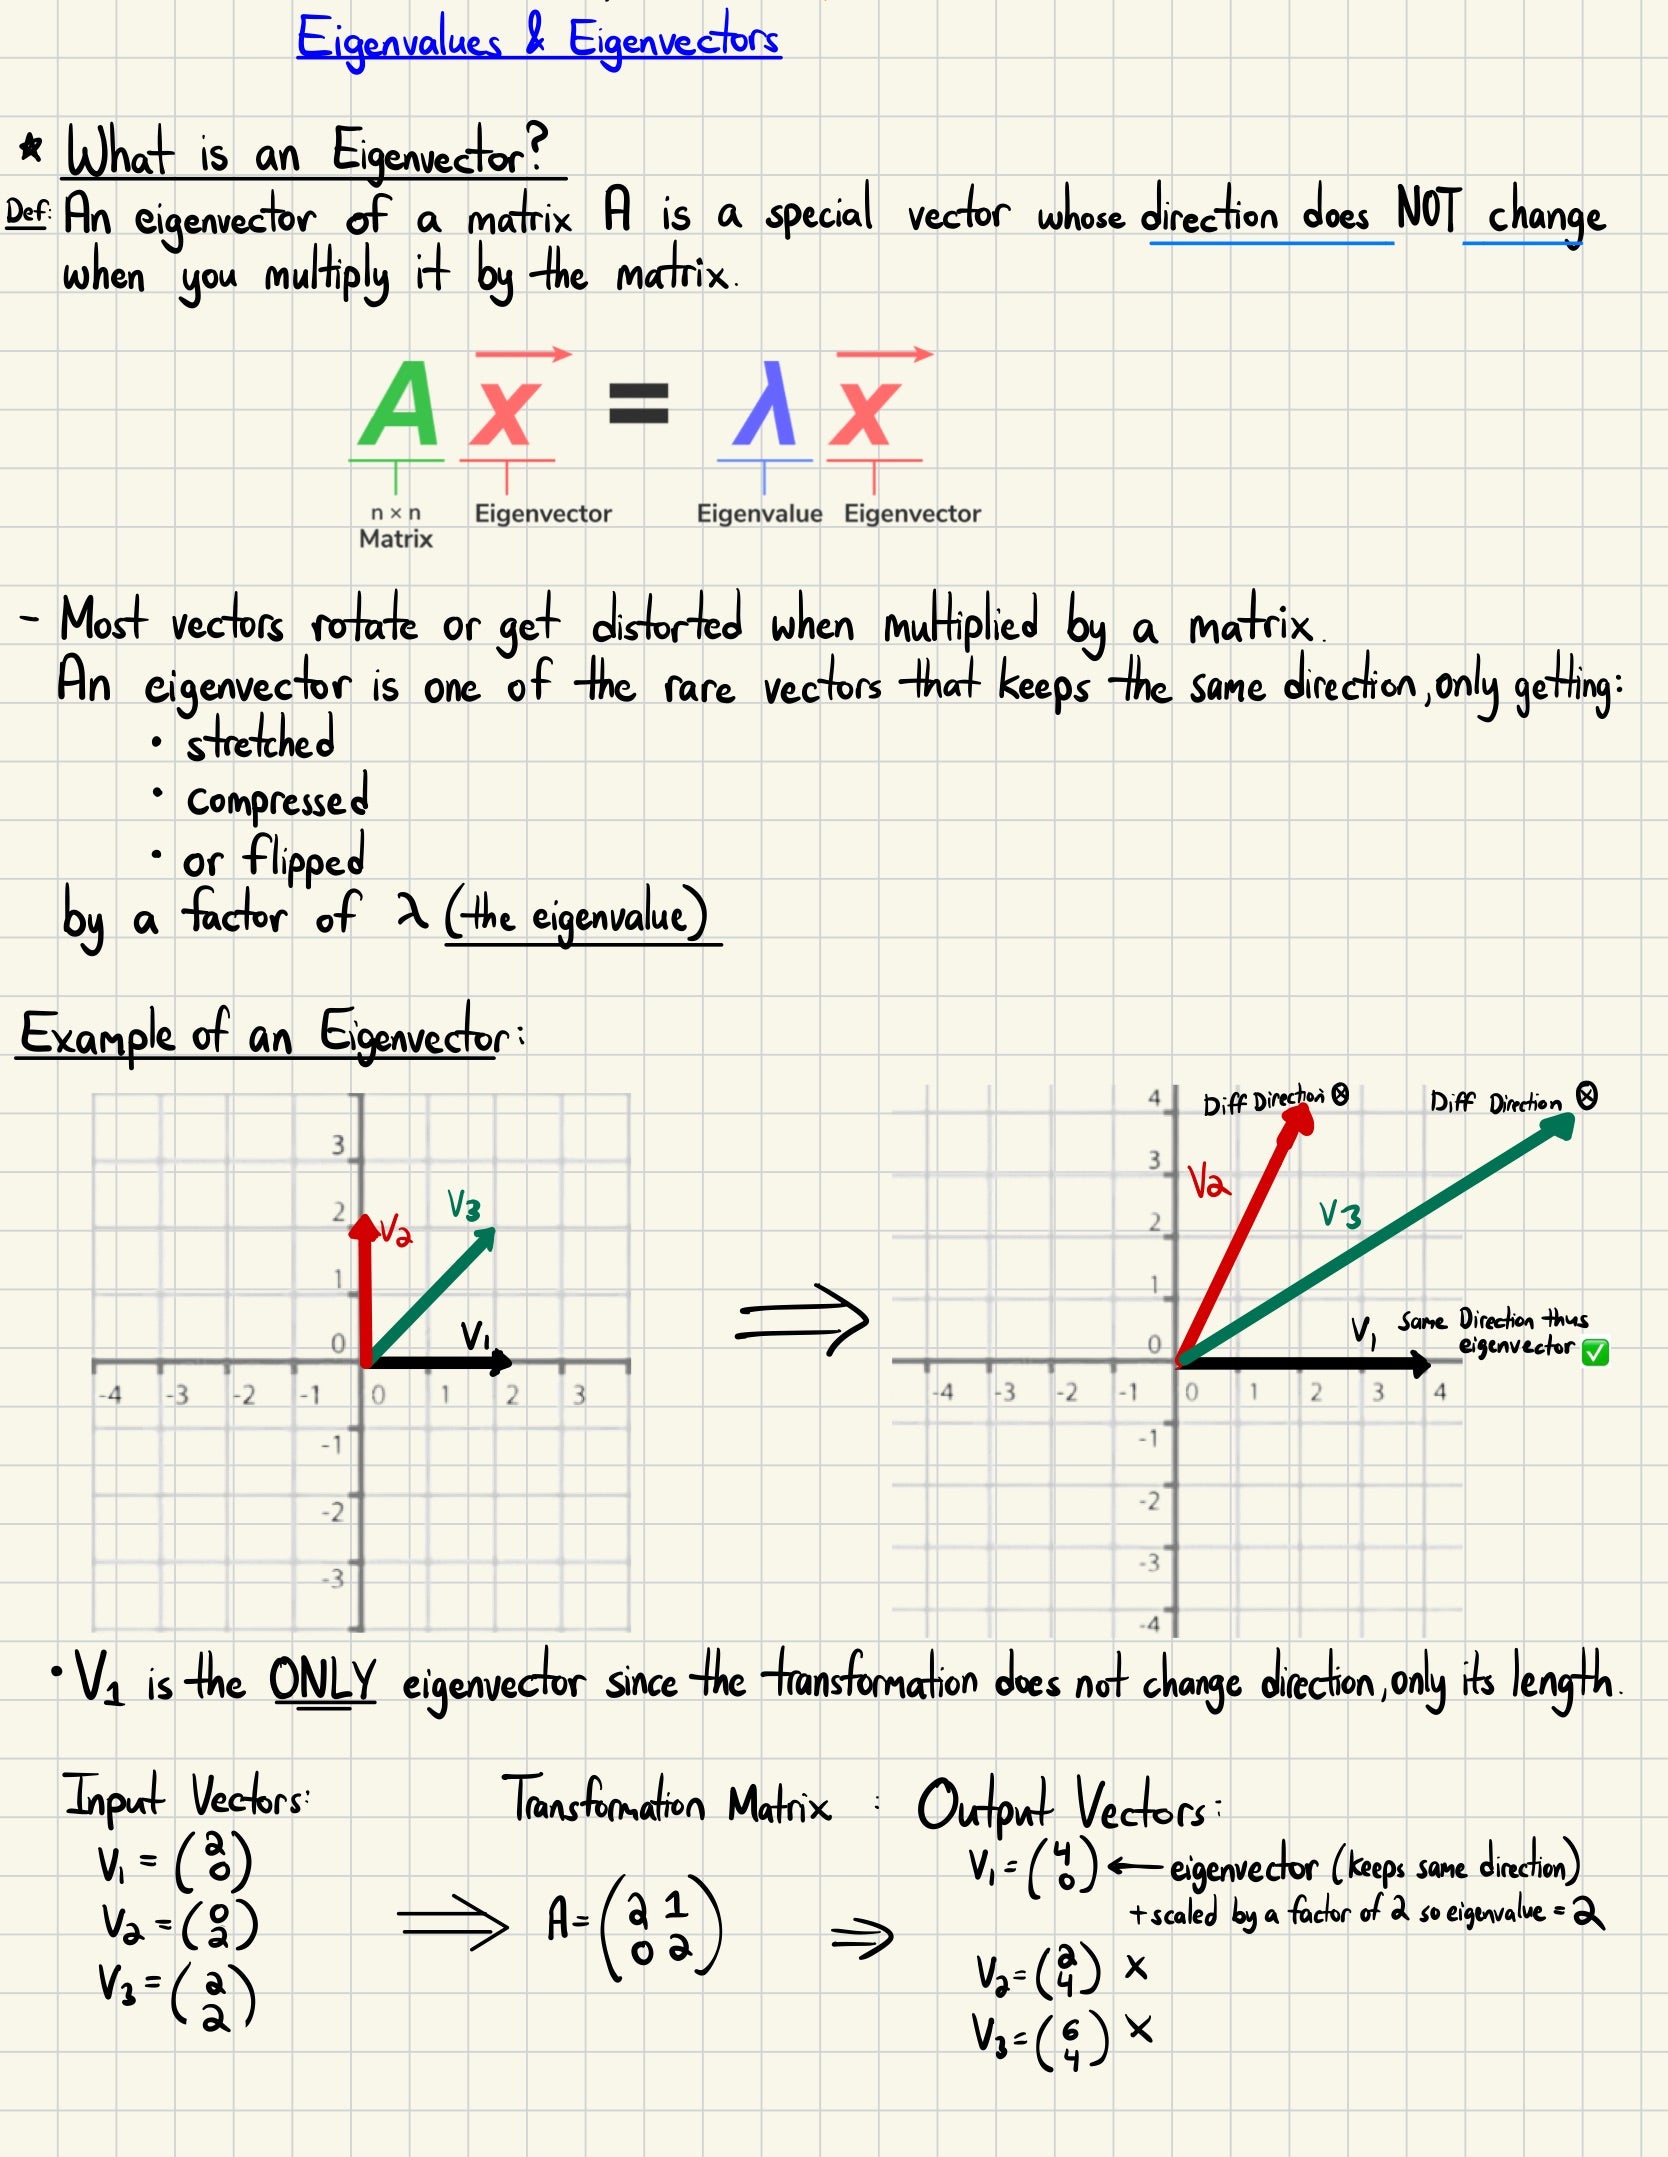 Eigenvalues & Eigenvectors
* What is an Eigenvector?
Def: An eigenvector of a matrix A is a special vector whose direction does NOT change
when you multiply it by the matrix.
A x = λ x
n × n Eigenvector Eigenvalue Eigenvector
Matrix
- Most vectors rotate or get distorted when multiplied by a matrix.
An eigenvector is one of the rare vectors that keeps the same direction, only getting:
• stretched
• compressed
• or flipped
by a factor of λ (the eigenvalue)
Example of an Eigenvector:
3
2
1
0
-4 -3 -2 -1 0 1 2 3
-1
-2
-3
V2
V3
V1
⇒
Diff Direction ⊗
Diff Direction ⊗
4
3
2
1
0
-4 -3 -2 -1 0 1 2 3 4
-1
-2
-3
-4
V2
V3
V1 Same Direction thus
eigenvector ✅
• V1 is the ONLY eigenvector since the transformation does not change direction, only its length.
Input Vectors:
V1 = (2
0)
V2 = (0
2)
V3 = (2
2)
⇒
Transformation Matrix :
A = (2 1
0 2)
⇒
Output Vectors:
V1 = (4
0) ← eigenvector (keeps same direction)
+ scaled by a factor of 2 so eigenvalue = 2
V2 = (2
4) X
V3 = (6
4) X